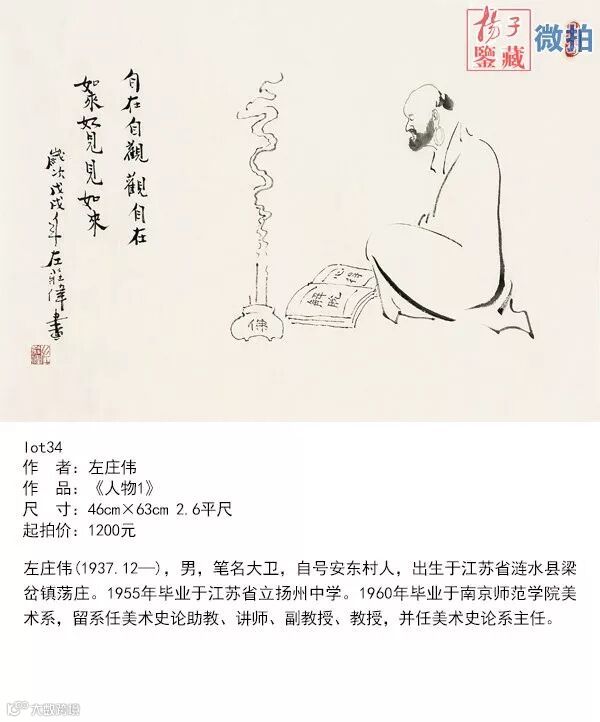 揚子
鑒藏
微拍
自在自觀觀自在
如來如見見如來
歲次戊戌年左莊偉書
佛
心經
解脫
lot34
作 者：左庄伟
作 品：《人物1》
尺 寸：46cm×63cm 2.6平尺
起拍价：1200元
左庄伟(1937.12—)，男，笔名大卫，自号安东村人，出生于江苏省涟水县梁
岔镇荡庄。1955年毕业于江苏省立扬州中学。1960年毕业于南京师范学院美
术系，留系任美术史论助教、讲师、副教授、教授，并任美术史论系主任。
大数跨境